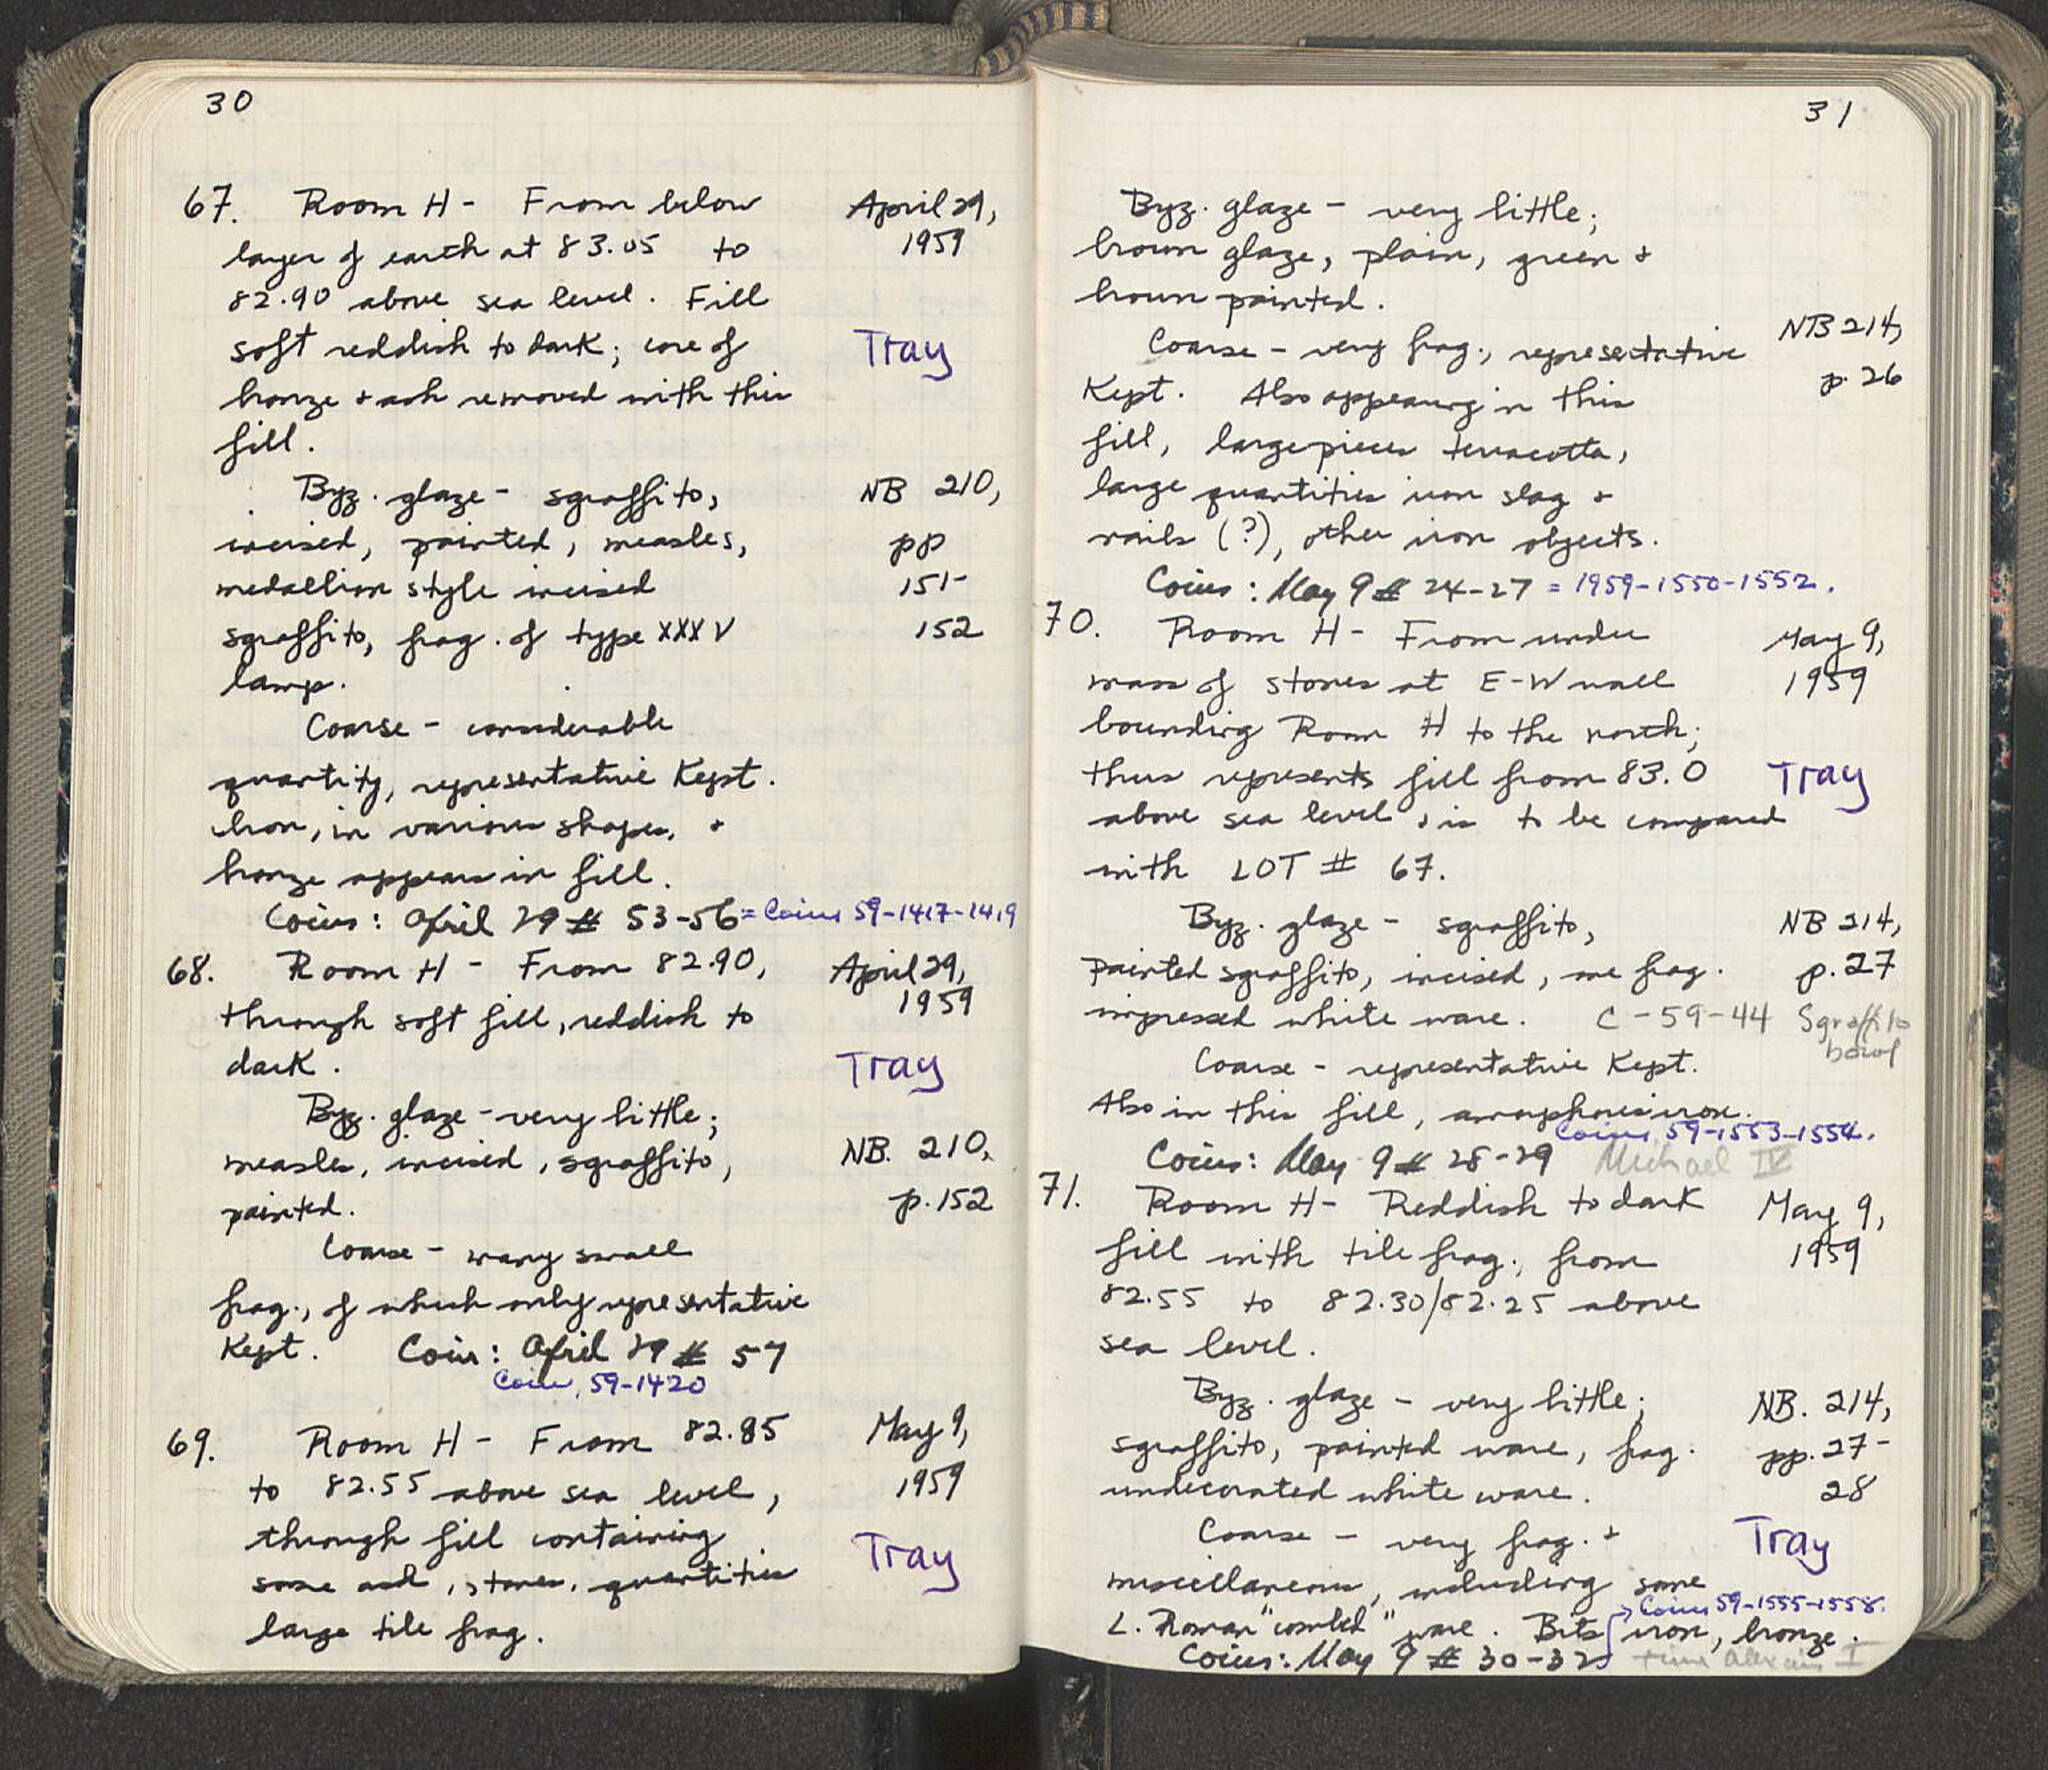 30
67. Room H - From below April 29,
layer of earth at 83.05 to 1959
82.90 above sea level. Fill
soft reddish to dark; core of Tray
bronze & ash removed with this
fill.
Byz. glaze - sgraffito, NB 210,
incised, painted, measles, pp
medallion style incised 151-
sgraffito, frag. of type XXXV 152
lamp.
Coarse - considerable
quantity, representative kept.
Iron, in various shapes, &
bronze appears in fill.
Coins: April 29 # 53-56 = Coins 59-1417-1419
68. Room H - From 82.90, April 29,
through soft fill, reddish to 1959
dark. Tray
Byz. glaze - very little;
measles, incised, sgraffito, NB. 210,
painted. p. 152
Coarse - many small
frag., of which only representative
kept. Coin: April 29 # 57
Coin, 59-1420
69. Room H - From 82.85 May 9,
to 82.55 above sea level, 1959
through fill containing Tray
some ash, stones, quantities
large tile frag.
31
Byz. glaze - very little;
brown glaze, plain, green &
brown painted.
Coarse - very frag., representative NB 214,
kept. Also appearing in this p. 26
fill, large pieces terracotta,
large quantities iron slag &
nails (?), other iron objects.
Coins: May 9 # 24-27 = 1959-1550-1552.
70. Room H - From under May 9,
mass of stones at E-W wall 1959
bounding Room H to the north;
thus represents fill from 83.0 Tray
above sea level & is to be compared
with LOT # 67.
Byz. glaze - sgraffito, NB 214,
painted sgraffito, incised, one frag. p. 27
impressed white ware. C-59-44 Sgraffito
bowl
Coarse - representative kept.
Also in this fill, amorphous iron.
Coins 59-1553-1554.
Coins: May 9 # 28-29 Michael IV
71. Room H - Reddish to dark May 9,
fill with tile frag., from 1959
82.55 to 82.30/82.25 above
sea level.
Byz. glaze - very little; NB. 214,
sgraffito, painted ware, frag. pp. 27-
undecorated white ware. 28
Coarse - very frag. & Tray
miscellaneous, including some
Coins 59-1555-1558.
L. Roman "combed" ware. Bits iron, bronze.
Coins: May 9 # 30-32 time Alexius I